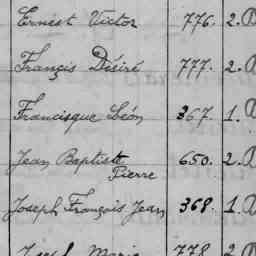 Ernest Victor 776. 2.
Françis Désiré 777. 2.
Francisque Léon 367. 1.
Jean Baptiste 650. 2.
Pierre
Joseph François Jean 368. 1.
Joseph Marie 778 2